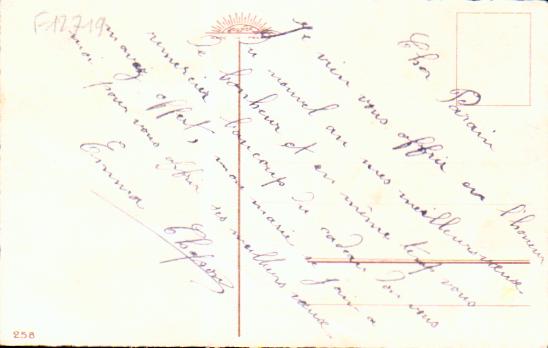 F12719
Cher Parain
Je vien vous offrir en l'honneur
du nouvel an mes meilleurs vœux
de bonheur et en même temp vous
remercier beaucoup du cadeau don vous
m'avez offert, mon marie se join a
moi pour vous offrir ses meilleurs vœux.
Emma
258